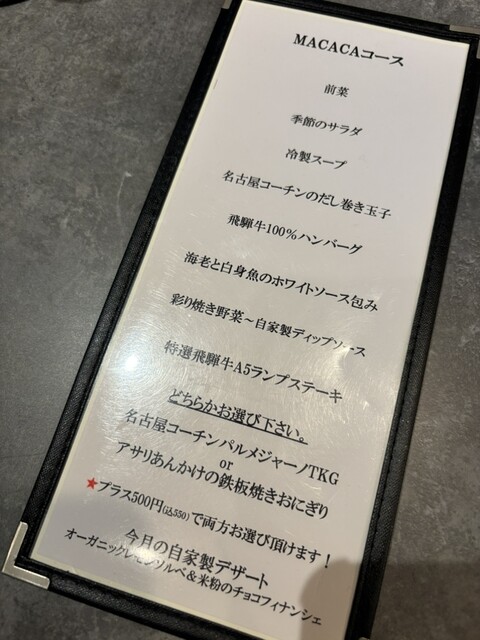 MACACAコース
前菜
季節のサラダ
冷製スープ
名古屋コーチンのだし巻き玉子
飛騨牛100%ハンバーグ
海老と白身魚のホワイトソース包み
彩り焼き野菜～自家製ディップソース
特選飛騨牛A5ランプステーキ
どちらかお選び下さい。
名古屋コーチンパルメジャーノTKG
or
アサリあんかけの鉄板焼きおにぎり
★プラス500円(込550)で両方お選び頂けます！
今月の自家製デザート
オーガニックレモンソルベ&米粉のチョコフィナンシェ